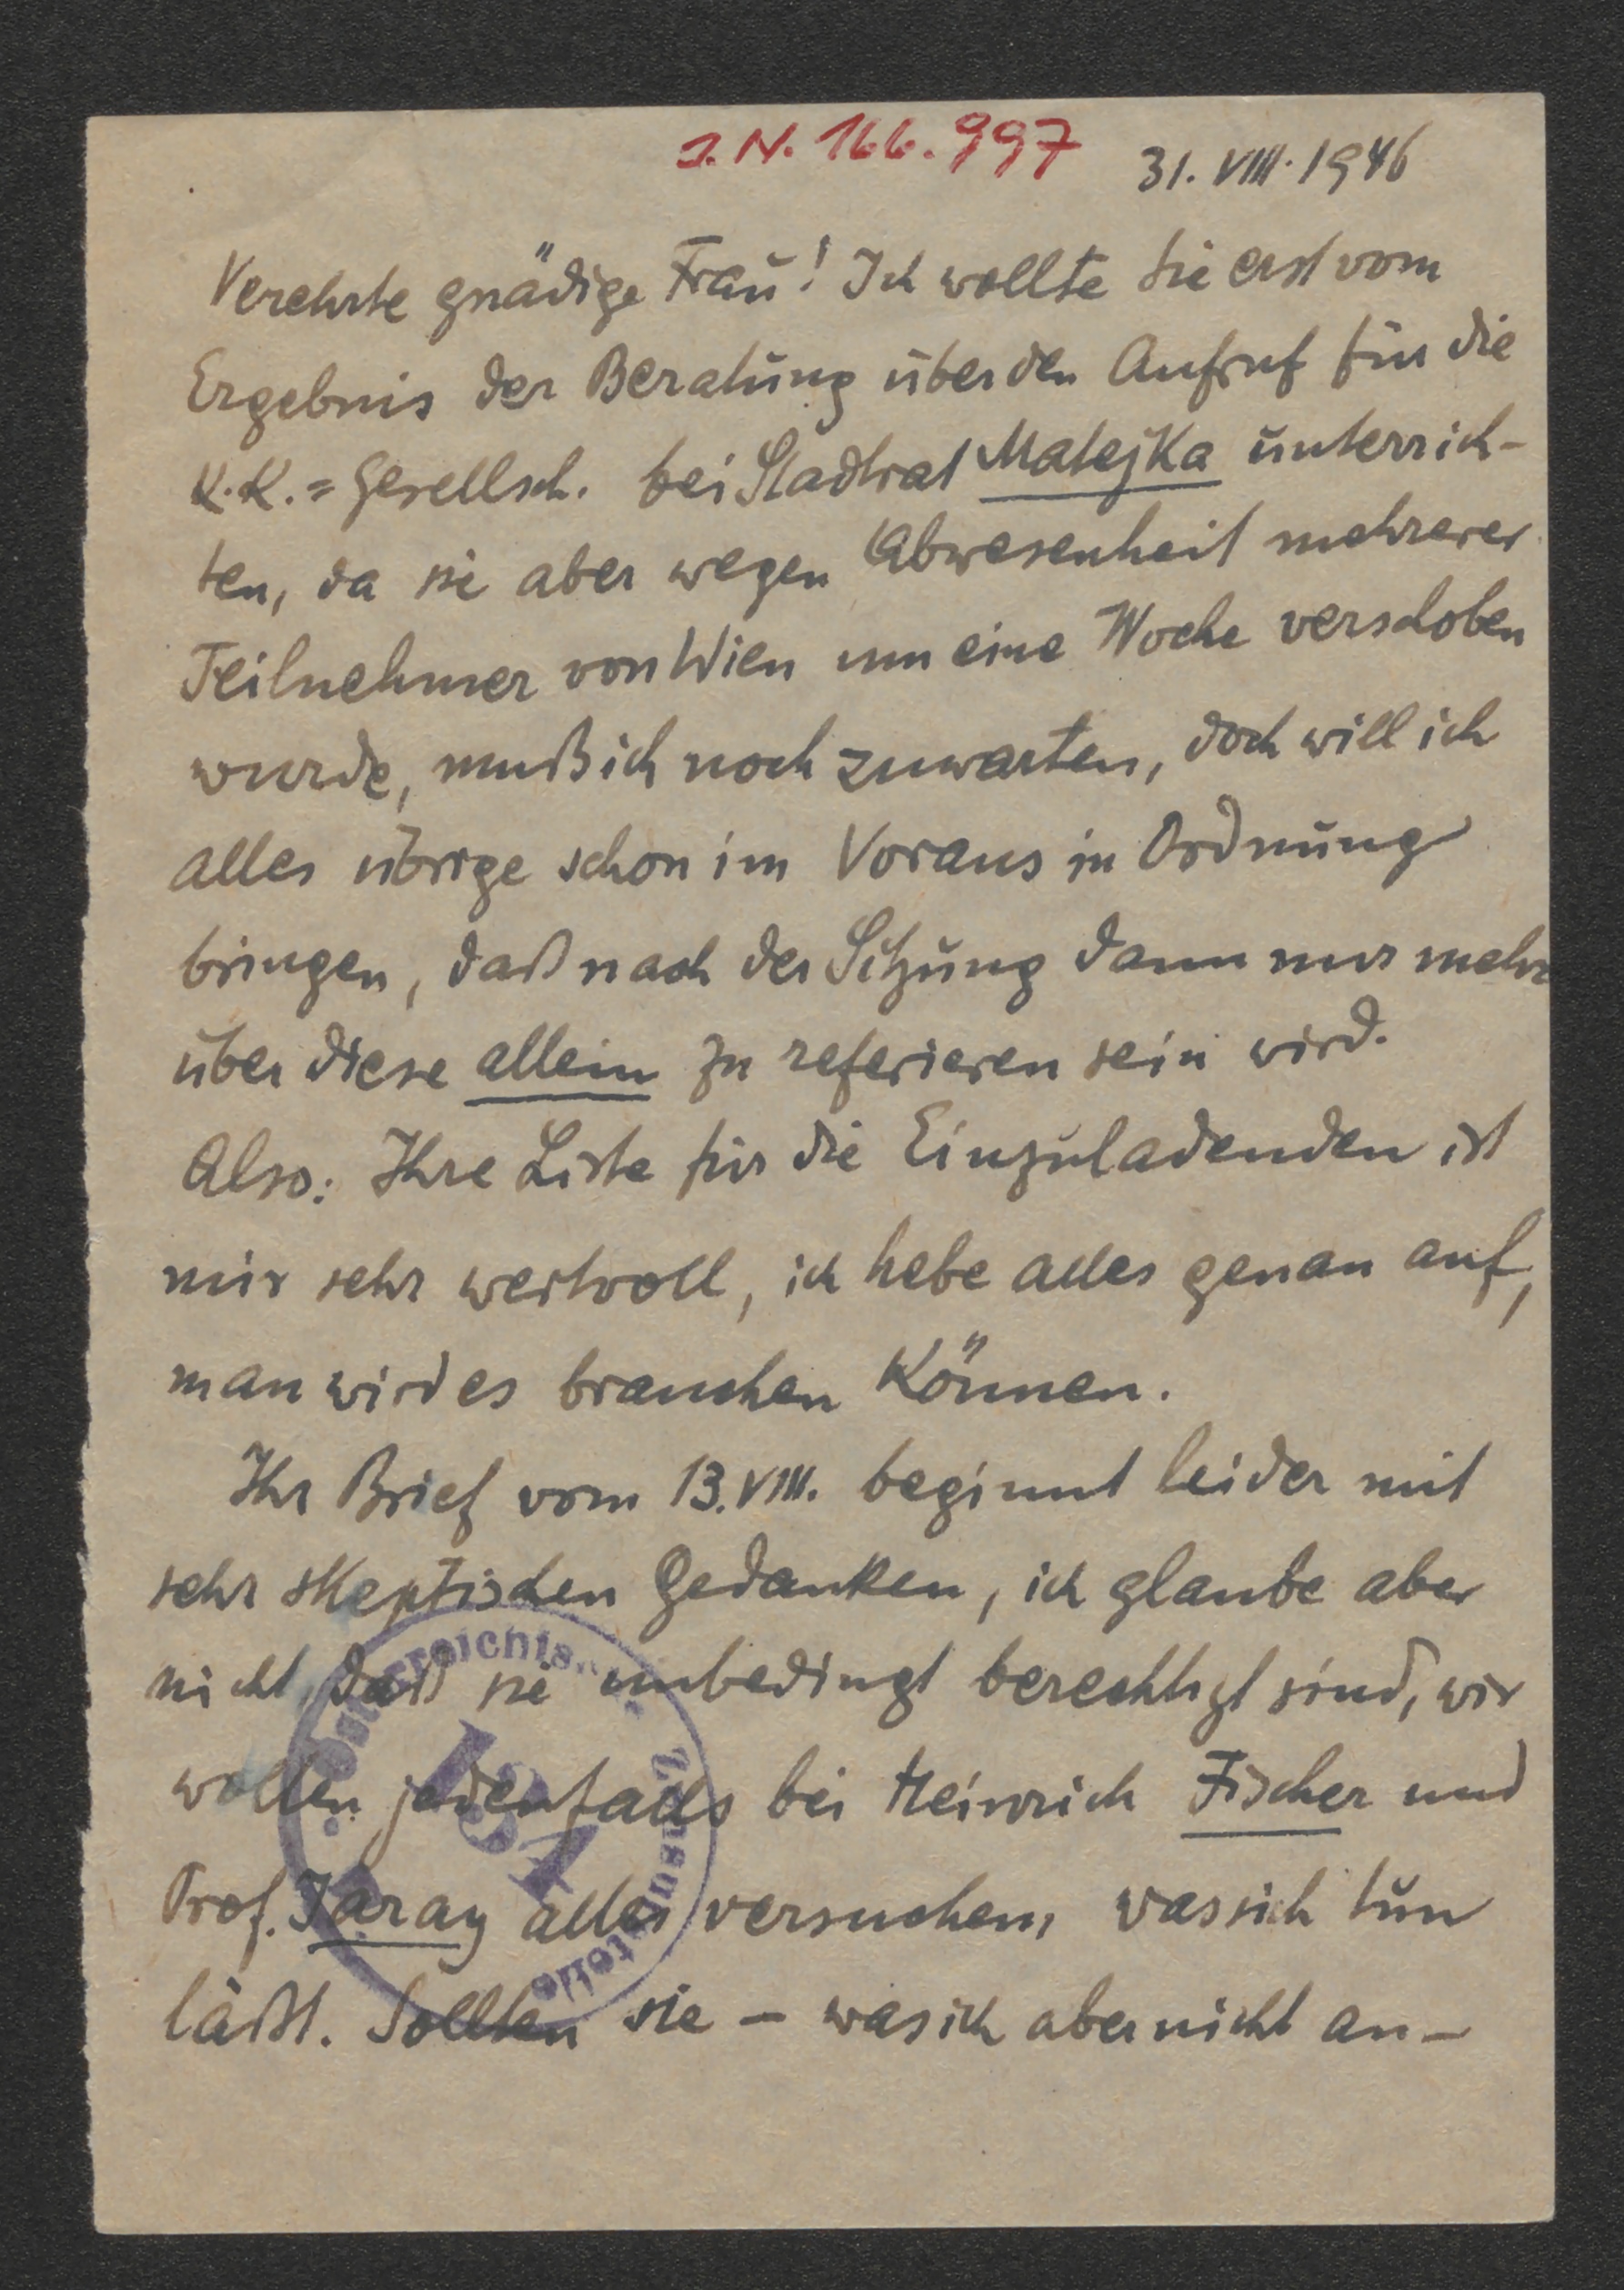 J.N. 166.997
31. VIII. 1946
Verehrte gnädige Frau! Ich wollte Sie erst vom
Ergebnis der Beratung über den Aufruf für die
K.K.=Gesellsch. bei Stadtrat Matejka unterrich-
ten, da sie aber wegen Abwesenheit mehrerer
Teilnehmer von Wien um eine Woche verschoben
wurde, muß ich noch zuwarten, doch will ich
alles übrige schon im Voraus in Ordnung
bringen, daß nach der Sitzung dann nur mehr
über diese allein zu referieren sein wird.
Also: Ihre Liste für die Einzuladenden ist
mir sehr wertvoll, ich hebe alles genau auf,
man wird es brauchen können.
Ihr Brief vom 13.VIII. beginnt leider mit
sehr skeptischen Gedanken, ich glaube aber
nicht, daß sie unbedingt berechtigt sind, wir
wollen jedenfalls bei Heinrich Fischer und
Prof. Jaray alles versuchen, was sich tun
läßt. Sollten sie – was ich aber nicht an-